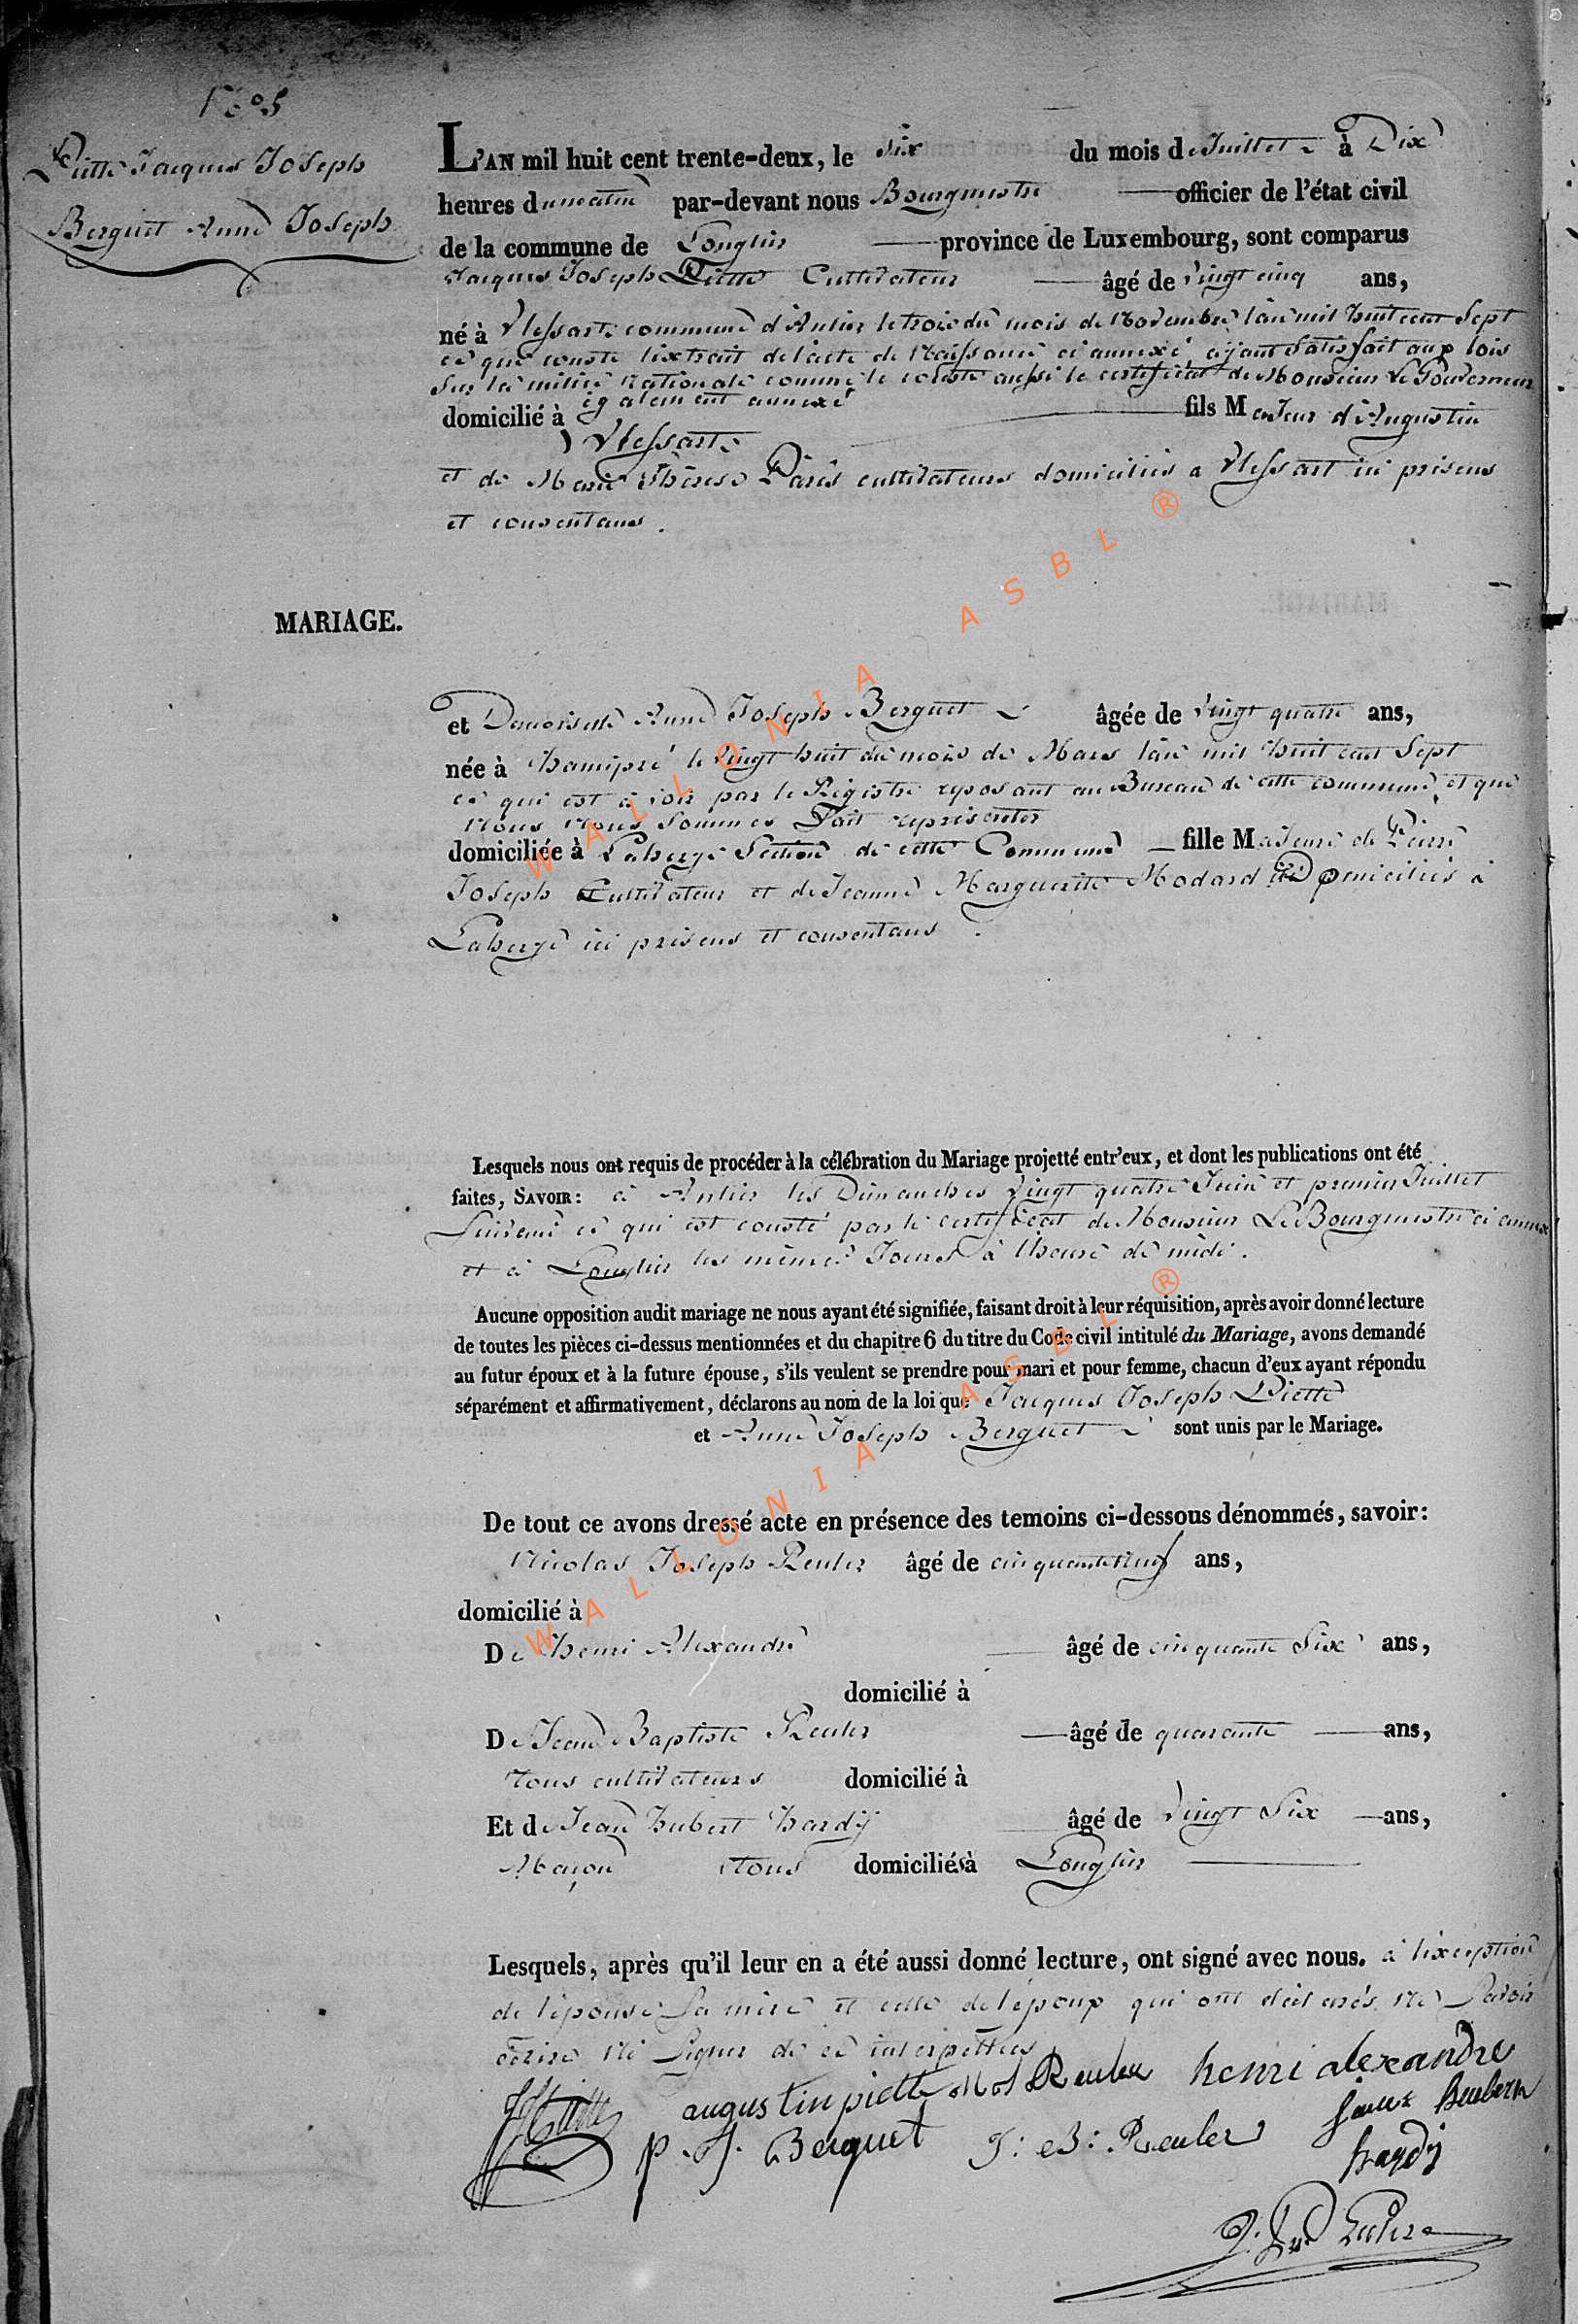 N° 5
Piette Jacques Joseph
Berguet Anne Joseph
L'AN mil huit cent trente-deux, le six du mois de Juillet à Dix
heures du matin par-devant nous Bourgmestre officier de l'état civil
de la commune de Longlier province de Luxembourg, sont comparus
Jacques Joseph Piette Cultivateur âgé de vingt cinq ans,
né à Vlessart commune d'Anlier le trois du mois de Novembre l'an mil huit cent Sept
ce que conste l'extrait de l'acte de Naissance ci annexé, ayant satisfait aux lois
sur la milice Nationale comme le conste aussi le certificat de Monsieur Le Gouverneur
également annexé
domicilié à Vlessart fils Majeur d'Augustin
et de Marie Thérese Paris cultivateurs domiciliés a Vlessart ici présens
et consentans.
MARIAGE.
et Demoiselle Anne Joseph Berguet âgée de vingt quatre ans,
née à hamipré le vingt huit du mois de Mars l'an mil huit cent Sept
ce qui est à voir par le Registre reposant au Bureau de cette commune et que
Nous Nous sommes Fait représenter
domiciliée à Laherge Section de cette Commune fille Majeure de Pierre
Joseph Cultivateur et de Jeanne Marguerite Modard domiciliés à
Laherge ici présens et consentans
Lesquels nous ont requis de procéder à la célébration du Mariage projetté entr'eux, et dont les publications ont été
faites, SAVOIR: à Anlier les Dimanches vingt quatre Juin et premier Juillet
Suivant ce qui est consté par le certificat de Monsieur Le Bourgmestre ci annexé
et à Longlier les mêmes Jours à l'heure de midi.
Aucune opposition audit mariage ne nous ayant été signifiée, faisant droit à leur réquisition, après avoir donné lecture
de toutes les pièces ci-dessus mentionnées et du chapitre 6 du titre du Code civil intitulé du Mariage, avons demandé
au futur époux et à la future épouse, s'ils veulent se prendre pour mari et pour femme, chacun d'eux ayant répondu
séparément et affirmativement, déclarons au nom de la loi que Jacques Joseph Piette
et Anne Joseph Berguet sont unis par le Mariage.
De tout ce avons dressé acte en présence des temoins ci-dessous dénommés, savoir:
Nicolas Joseph Reuler âgé de ans,
domicilié à
De henri Alexandre âgé de cinquante Six ans,
domicilié à
De Jean Baptiste Reuler âgé de quarante ans,
tous cultivateurs domicilié à
Et de Jean hubert hardÿ âgé de vingt Six ans,
Maçon tous domiciliés à Longlier
Lesquels, après qu'il leur en a été aussi donné lecture, ont signé avec nous. à l'exception
de l'épouse Sa mère et celle de l'époux qui ont déclarés Ne Savoir
écrire Ni Signer de ce interpellées
augustin piette Reuler henri alexandre
p. J. Berguet J: B: Reuler
hardÿ
WALLONIA ASBL ®
WALLONIA ASBL ®